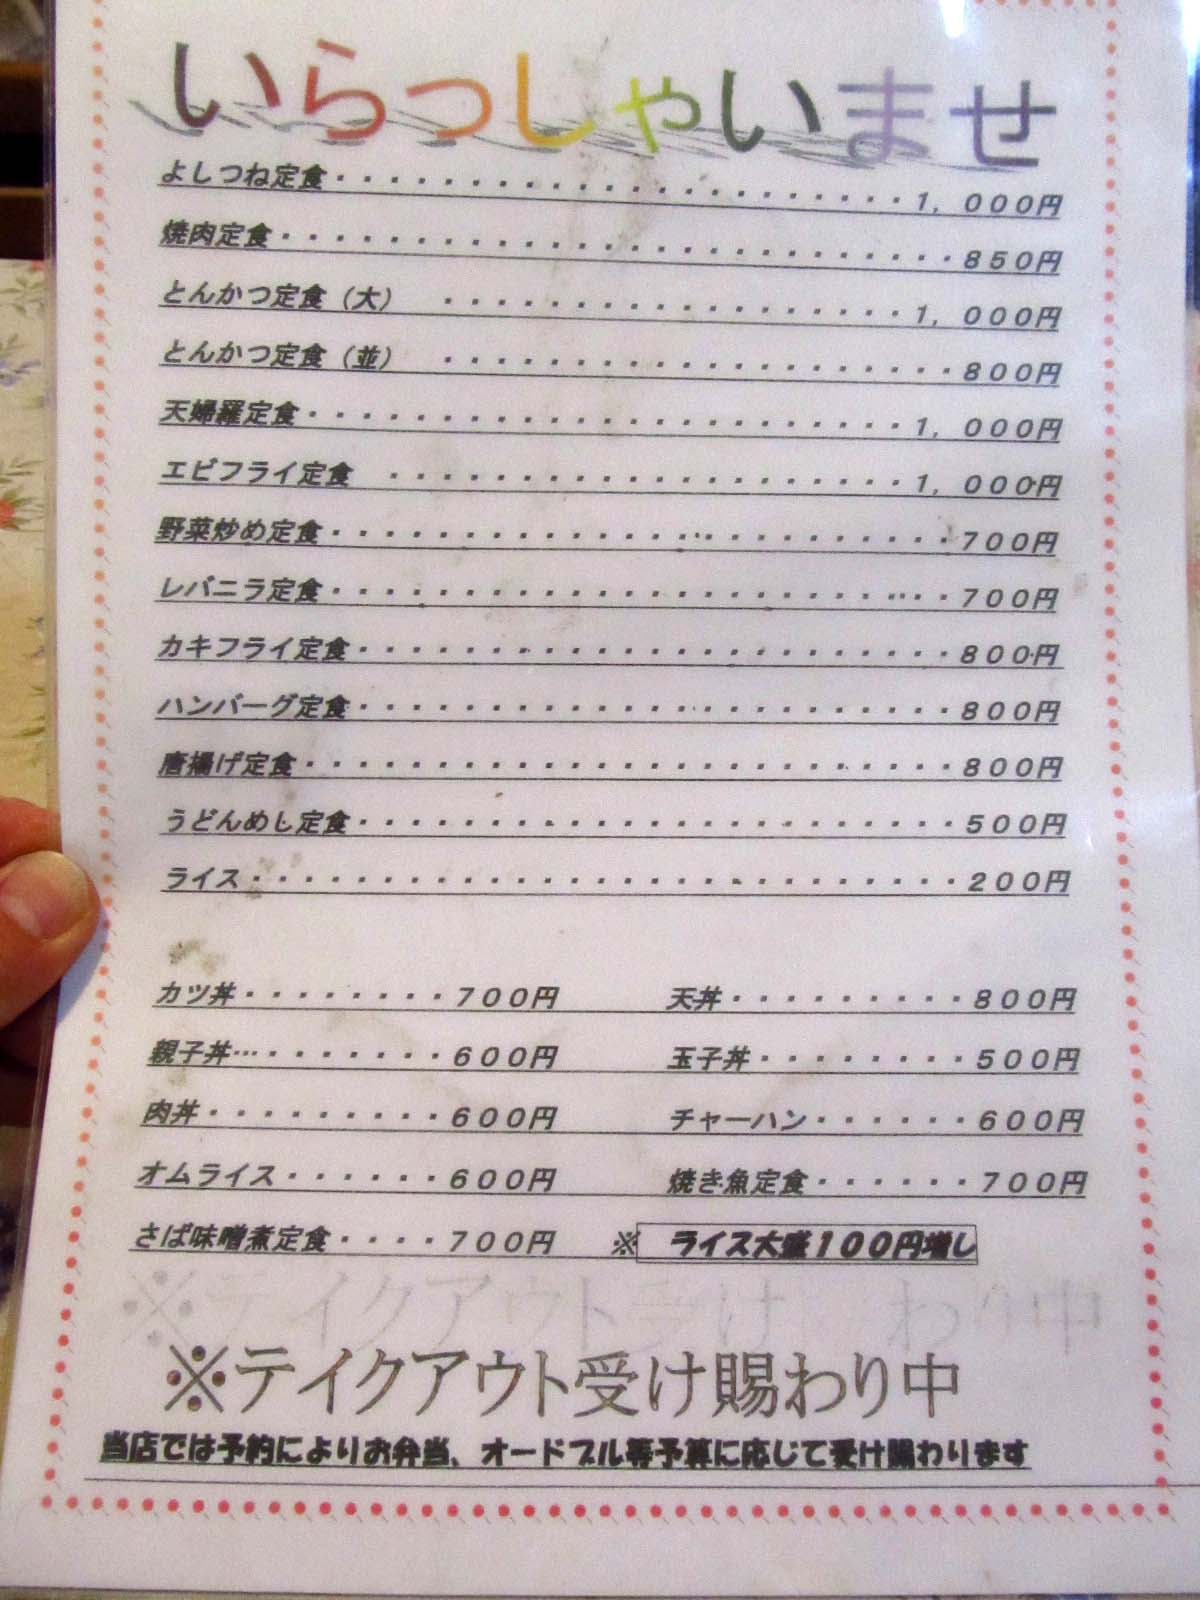 いらっしゃいませ
よしつね定食・・・・・・・・・・・・・・・・・・・・・・1，000円
焼肉定食・・・・・・・・・・・・・・・・・・・・・・・・・850円
とんかつ定食（大）　・・・・・・・・・・・・・・・・・・1，000円
とんかつ定食（並）　・・・・・・・・・・・・・・・・・・・800円
天婦羅定食・・・・・・・・・・・・・・・・・・・・・・・1，000円
エビフライ定食　・・・・・・・・・・・・・・・・・・・・1，000円
野菜炒め定食・・・・・・・・・・・・・・・・・・・・・・・700円
レバニラ定食・・・・・・・・・・・・・・・・・・・・・・・700円
カキフライ定食・・・・・・・・・・・・・・・・・・・・・・800円
ハンバーグ定食・・・・・・・・・・・・・・・・・・・・・・800円
唐揚げ定食・・・・・・・・・・・・・・・・・・・・・・・・800円
うどんめし定食・・・・・・・・・・・・・・・・・・・・・・500円
ライス・・・・・・・・・・・・・・・・・・・・・・・・・・200円
カツ丼・・・・・・・・700円　天丼・・・・・・・・・800円
親子丼…・・・・・・・600円　玉子丼・・・・・・・・500円
肉丼・・・・・・・・・600円　チャーハン・・・・・・600円
オムライス・・・・・・600円　焼き魚定食・・・・・・700円
さば味噌煮定食・・・・700円　※　ライス大盛100円増し
※テイクアウト受け賜わり中
当店では予約によりお弁当、オードブル等予算に応じて受け賜わります